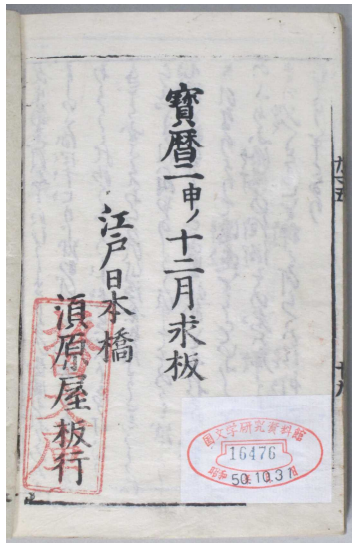 寳暦二申ノ十二月求板
江戸日本橋
須原屋板行
国文学研究資料館
16476
昭和50.10.3